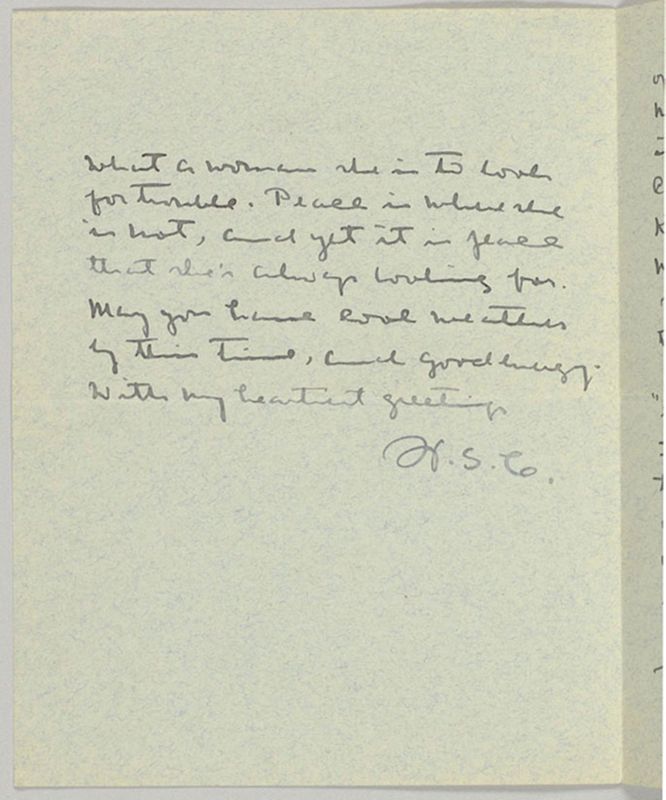 What a woman she is to look
for trouble. Peace is where she
is not, and yet it is peace
that she's always looking for.
May you have cool weather
by this time, and good
With my heartiest greetings
H. S. C.